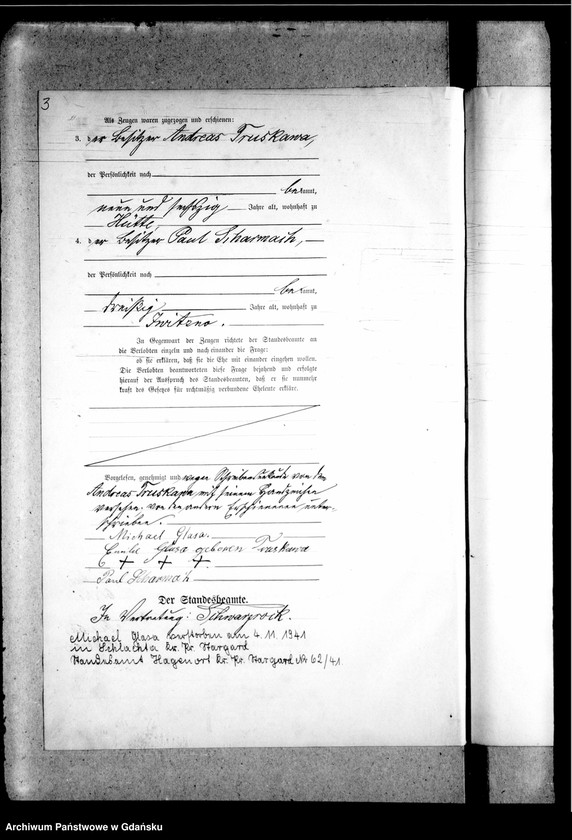 3
Als Zeugen waren zugezogen und erschienen:
3. der Besitzer Andreas Truskawa,
der Persönlichkeit nach
bekannt,
neun und sechszig Jahre alt, wohnhaft zu
Hütte,
4. der Besitzer Paul Scharmach,
der Persönlichkeit nach
bekannt,
dreißig Jahre alt, wohnhaft zu
Iwitzno.
In Gegenwart der Zeugen richtete der Standesbeamte an
die Verlobten einzeln und nach einander die Frage:
ob sie erklären, daß sie die Ehe mit einander eingehen wollen.
Die Verlobten beantworteten diese Frage bejahend und erfolgte
hierauf der Ausspruch des Standesbeamten, daß er sie nunmehr
kraft des Gesetzes für rechtmäßig verbundene Eheleute erkläre.
Vorgelesen, genehmigt und wegen Schreibensunkunde von dem
Andreas Truskawa mit seinem Handzeichen
versehen, von den andern Erschienenen unter-
schrieben.
Michael Glasa.
Glasa geboren Truskawa
+ + +
Paul Scharmach
Der Standesbeamte.
In Vertretung: Schwarzrock.
Michael Glasa verstorben am 4.11.1941
in Schlachta Kr. Pr. Stargard
Standesamt Hagenort Kr. Pr. Stargard Nr 62/41.
Archiwum Państwowe w Gdańsku